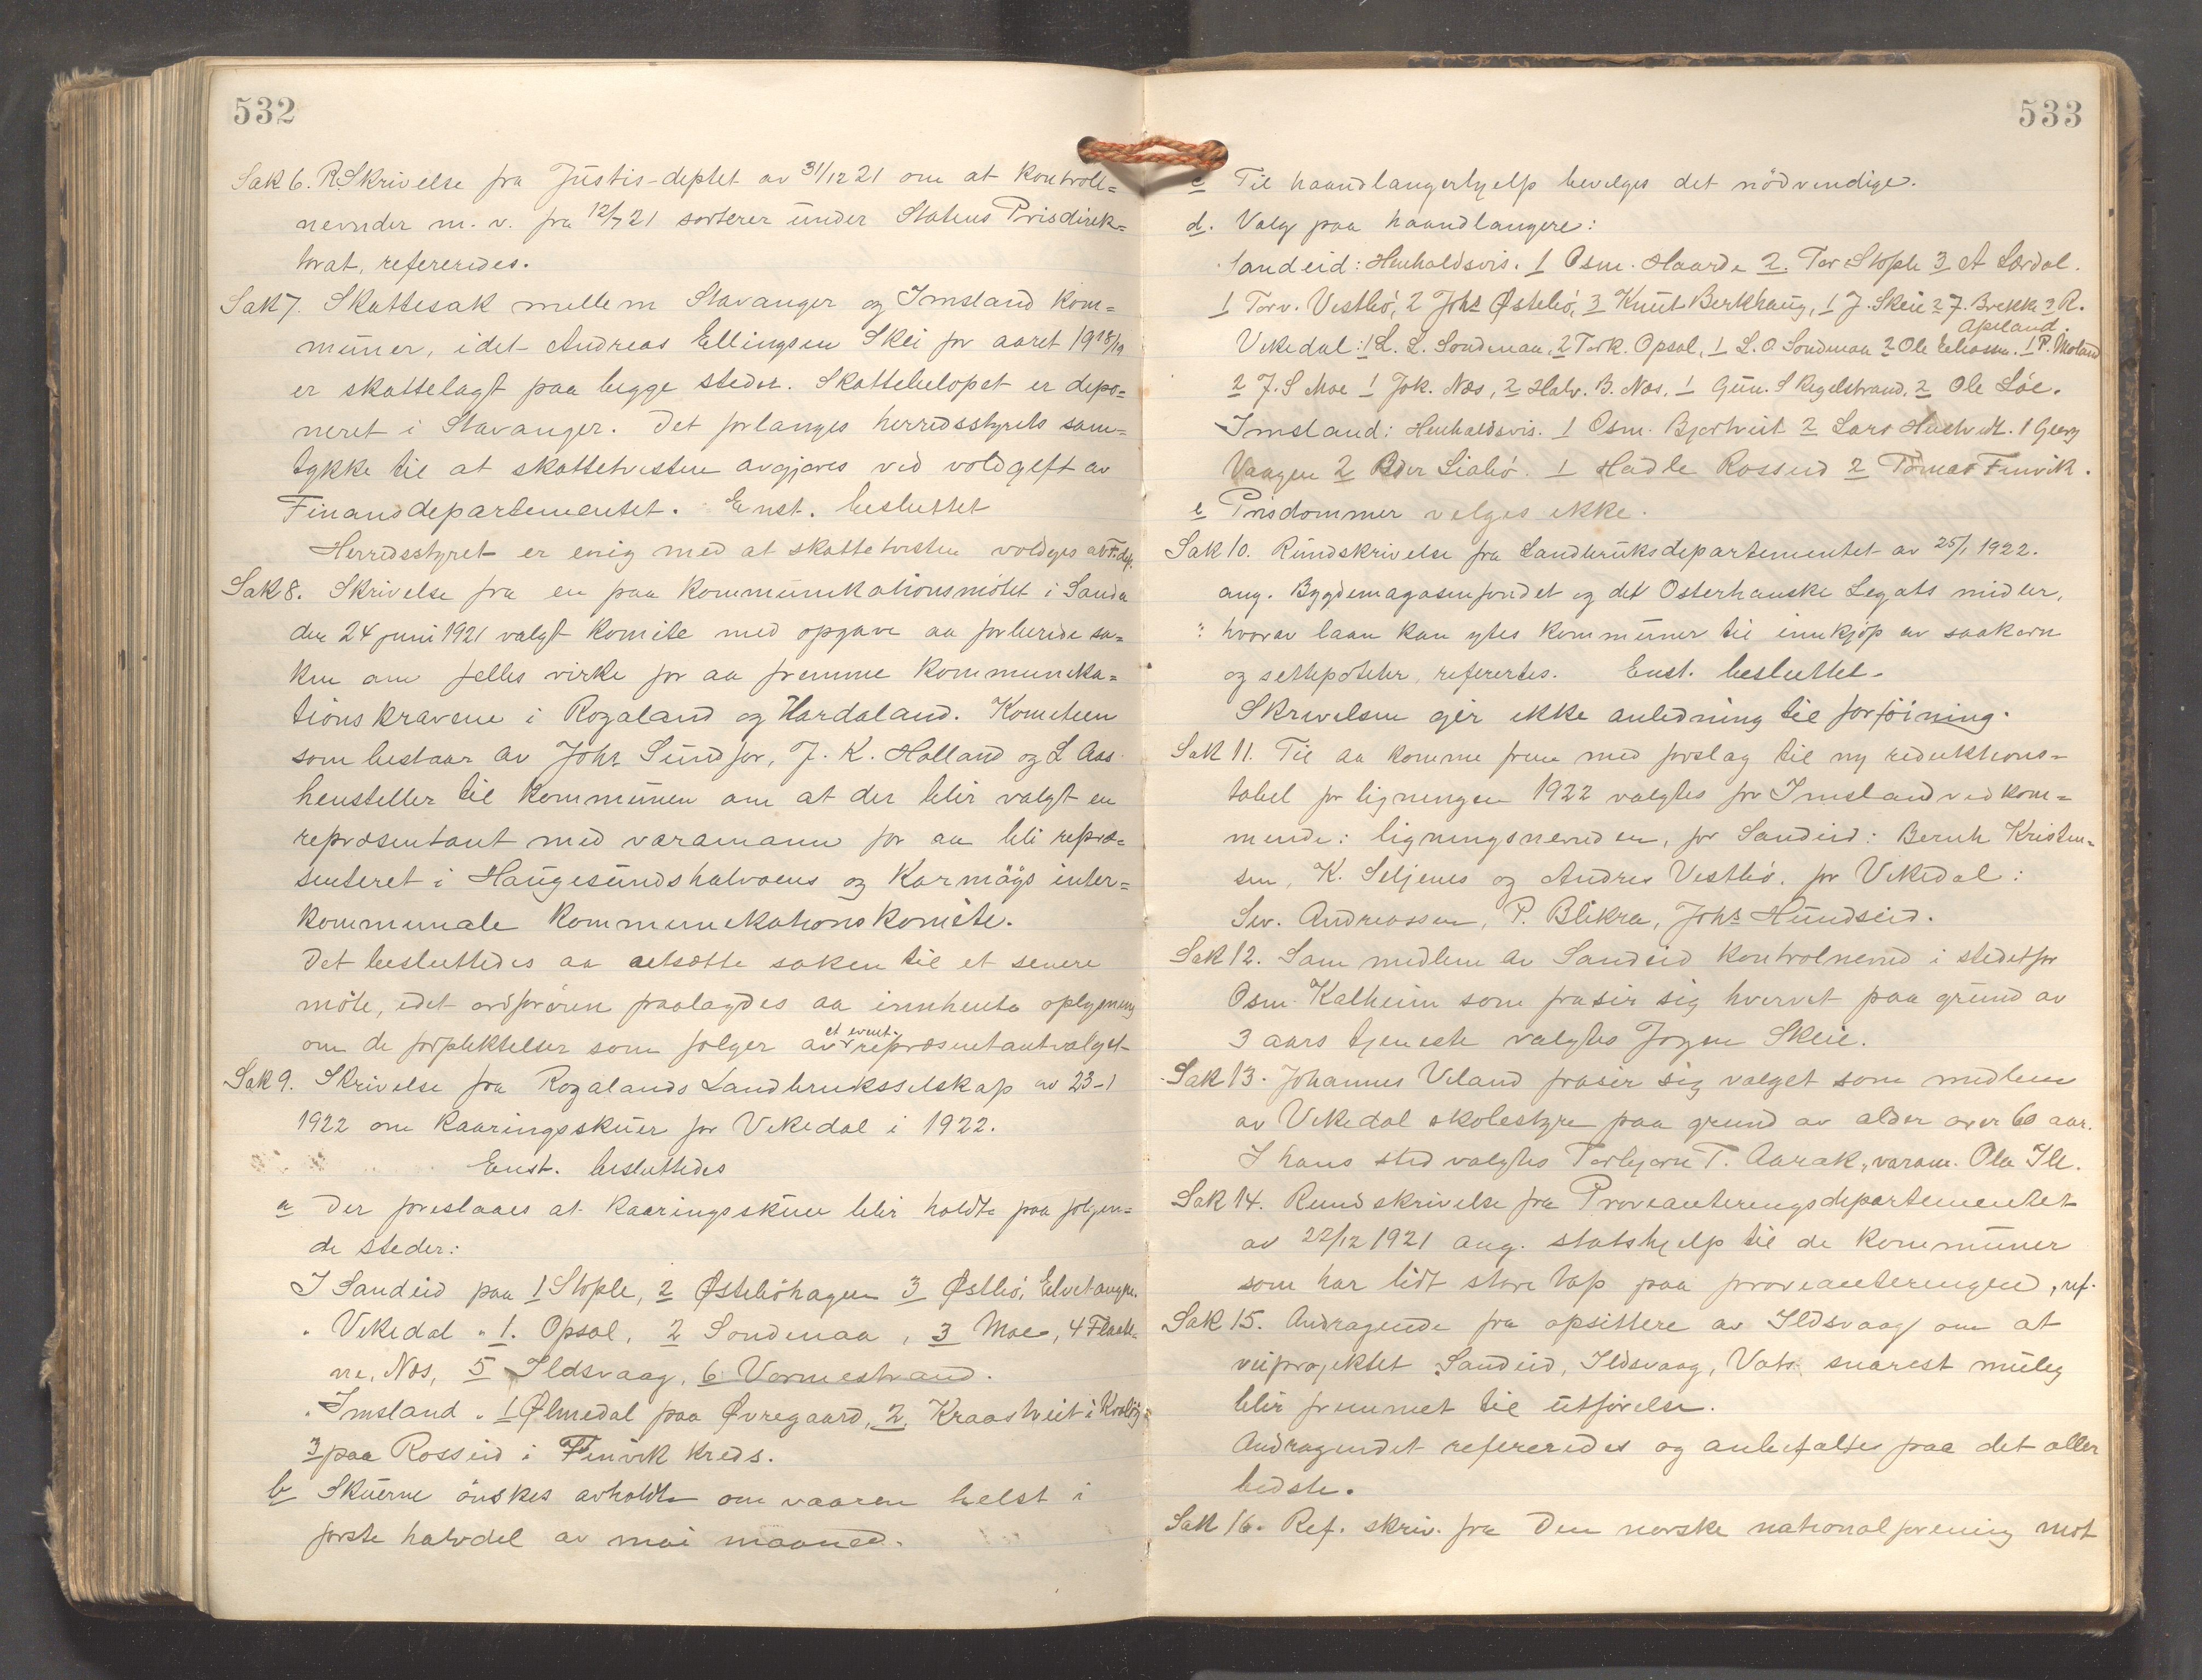 532
Sak 6. R.Skrivelse fra Justis-deptet av 31/12 21 om at kontroll=
nevnder m.v. fra 12/7 21 sorterer under Statens Prisdirek=
torat, refereredes.
Sak 7. Skattesak mellem Stavanger og Imsland kom=
muner, idet Andreas Ellingsen Skei for aaret 1918/19
er skattelagt paa begge steder. Skattebelopet er depo=
neret i Stavanger. Det forlanges herredsstyrets sam=
tykke til at skattetvisten avgjøres ved voldgift av
Finansdepartementet. Enst. besluttet
Herredsstyret er enig med at skattetvisten voldgis av F.dep.
Sak 8. Skrivelse fra en paa kommunikationsmötet i Sauda
den 24 juni 1921 valgt komite med opgave aa forberede sa=
ken om felles virke for aa fremme kommunika=
tionskravene i Rogaland og Hardaland. Komiteen
som bestaar av Johs Sundfor, J. K. Halland og L Aas
henstiller til kommunen om at der blir valgt en
repræsentant med varamann for aa bli repræ=
senteret i Haugesundshalvöens og Karmöys inter=
kommunale kommunikationskomite.
Det besluttedes aa utsætte saken til et senere
möte, idet ordföreren paalagdes aa innhente oplysning
om de forpliktelser som følger av et event. repræsentantvalget
Sak 9. Skrivelse fra Rogalands Landbruksselskap av 23-1
1922 om Kaaringsskuer for Vikedal i 1922.
Enst. besluttedes
a Der foreslaaes at kaaringsskuer blir holdt paa følgen=
de steder:
I Sandeid paa 1 Stople, 2 Østeböhagen 3 Østbö, Elvetangen.
" Vikedal " 1. Opsal, 2 Söndenaa, 3 Moe, 4 Flaate=
ne, Nes, 5 Ildsvaag, 6 Vormestrand.
" Imsland " 1 Ølmedal paa Øvregaard, 2 Kraastveit i
3 paa Rosseid i Finvik kreds.
b Skuerne önskes avholdt om vaaren helst i
forste halvdel av mai maaned.
533
c Til haandlangerhjelp bevilges det nödvendige.
d. Valg paa haandlangere:
Sandeid: Henholdsvis. 1 Osm. Haarde 2. Tor Stople 3 A Lærdal.
1 Torv. Vestbö, 2 Johs Östebö, 3 Knut Berkhaug, 1 J. Skeie 2 J. Brekke 3 R.
Apeland.
Vikedal: 1 L. L. Sondenaa, 2 Tork. Opsal, 1 L. O. Sondenaa 2 Ole Eliassen. 1 P. Moland
2 J. S Moe 1 Jok. Næs, 2 Halv. B. Næs, 1 Gun. S Regelstrand, 2 Ole Löe.
Imsland: Henholdsvis. 1 Osm. Bjortveit 2 Lars Hustvedt. 1 Georg
Vaagen 2 Peder Liabö. 1 Hadle Rosseid 2 Tomas Finvik.
e Prisdommer velges ikke.
Sak 10. Rundskrivelse fra Landbruksdepartementet av 25/1 1922.
ang. Bygdemagasinfondet og det Osterhauske Legats midler,
hvorav laan kan ytes kommuner til innkjöp av saakorn
og settepoteter, refererdes. Enst. besluttet.
Skrivelsen gir ikke anledning til forföining.
Sak 11. Til aa komme frem med forslag til ny reduktions=
tabel for ligningen 1922 valgtes for Imsland vedkom=
mende: ligningsnevnden, for Sandeid: Bernh Kristen=
sen, K. Seljenes og Andres Vestbö. for Vikedal:
Sev. Andreassen, P. Blikra, Johs Hundseid.
Sak 12. Som medlem av Sandeid kontrolnevnd i stedetfor
Osm. Kalheim som frasier sig hvervet paa grund av
3 aars tjeneste valgtes Jorgen Skeie.
Sak 13. Johannes Veland frasier sig valget som medlem
av Vikedal skolestyre paa grund av alder over 60 aar.
I hans sted valgtes Torbjorn T. Aarak, varam. Ola Ile.
Sak 14. Rundskrivelse fra Provianteringsdepartementet
av 22/12 1921 ang. statshjelp til de kommuner
som har lidt store tap paa provianteringen, ref.
Sak 15. Andragende fra opsittere av Ildsvaag om at
veiprojektet Sandeid, Ildsvaag, Vats snarest mulig
blir fremmet til utförelse.
Andragendet refereredes og anbefaltes paa det aller
bedste.
Sak 16. Ref. skriv. fra Den norske nationalforening mot